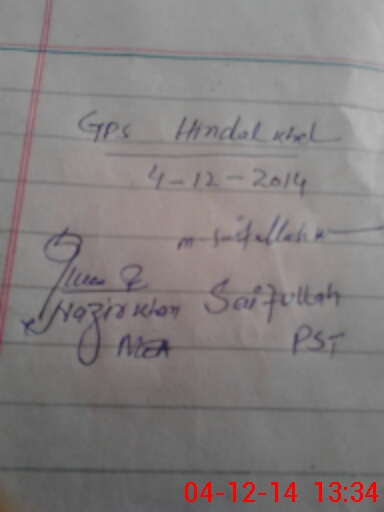 GPS Hindal khel
4-12-2014
m. Saifullah k
Nazir khan Saifullah
MEA PST
04-12-14 13:34